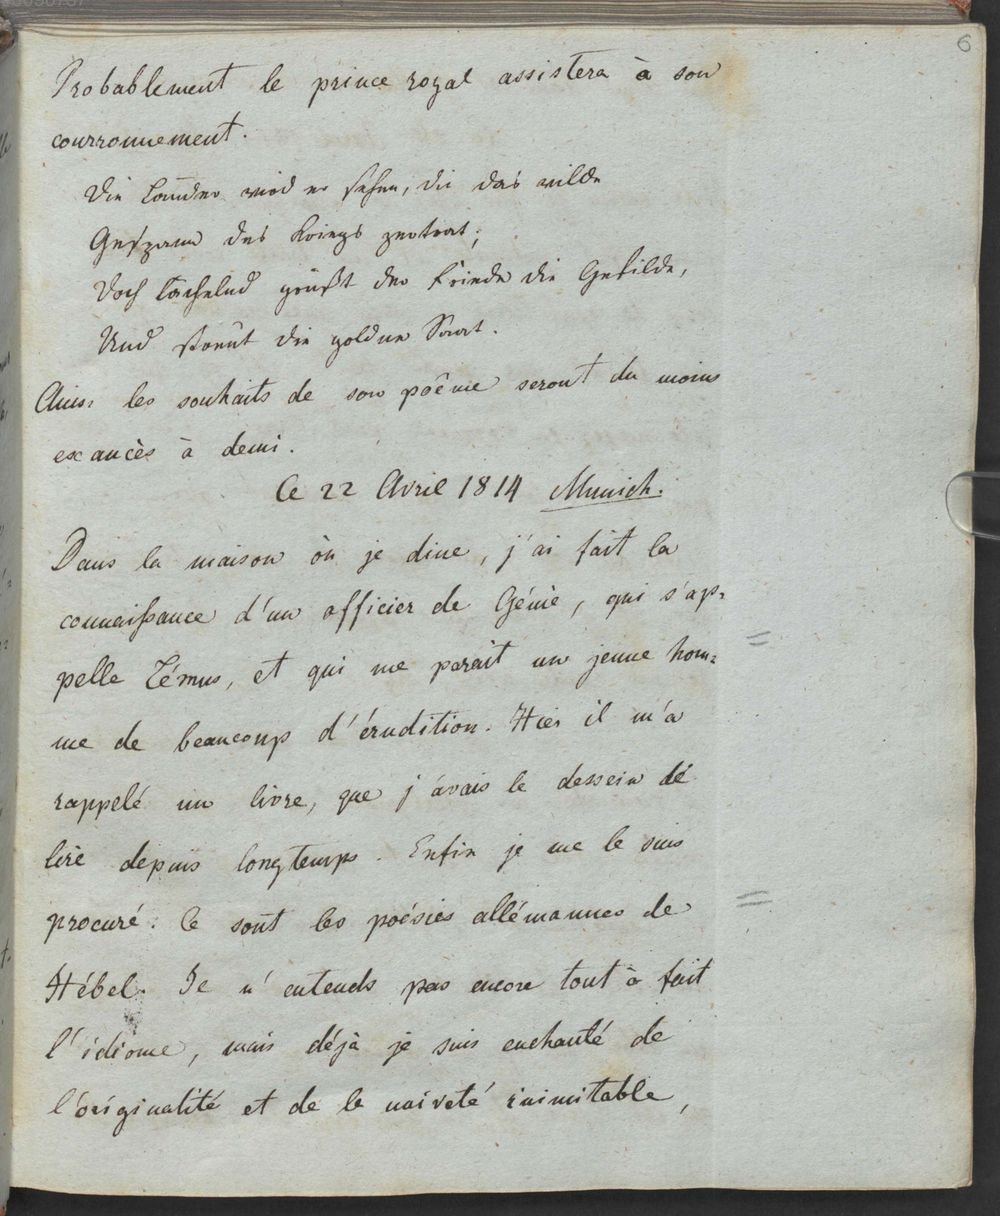 6
Probablement le prince royal assistera à son
courronnement.
Die Länder wird er sehen, die das wilde
Gespann des Kriegs zertrat;
Doch lächelnd grüßt der Friede die Gefilde,
Und streut die goldne Saat.
Ainsi les souhaits de son poême seront du moins
exaucès à demi.
Ce 22 Avril 1814 Munich.
Dans la maison òu je dine, j'ai fait la
connaißance d'un officier de Génie, qui s'ap=
pelle Zémus, et qui me parait un jeune hom=
me de beaucoup d'érudition. Hier il m'a
rappelé un livre, que j'avais le dessein de
lire depuis longtemps. Enfin je me le suis
procuré: Ce sont les poésies allémannes de
Hébel. Je n'entends pas encore tout à fait
l'idiome, mais déjà je suis enchanté de
l'originalité et de la naiveté inimitable,